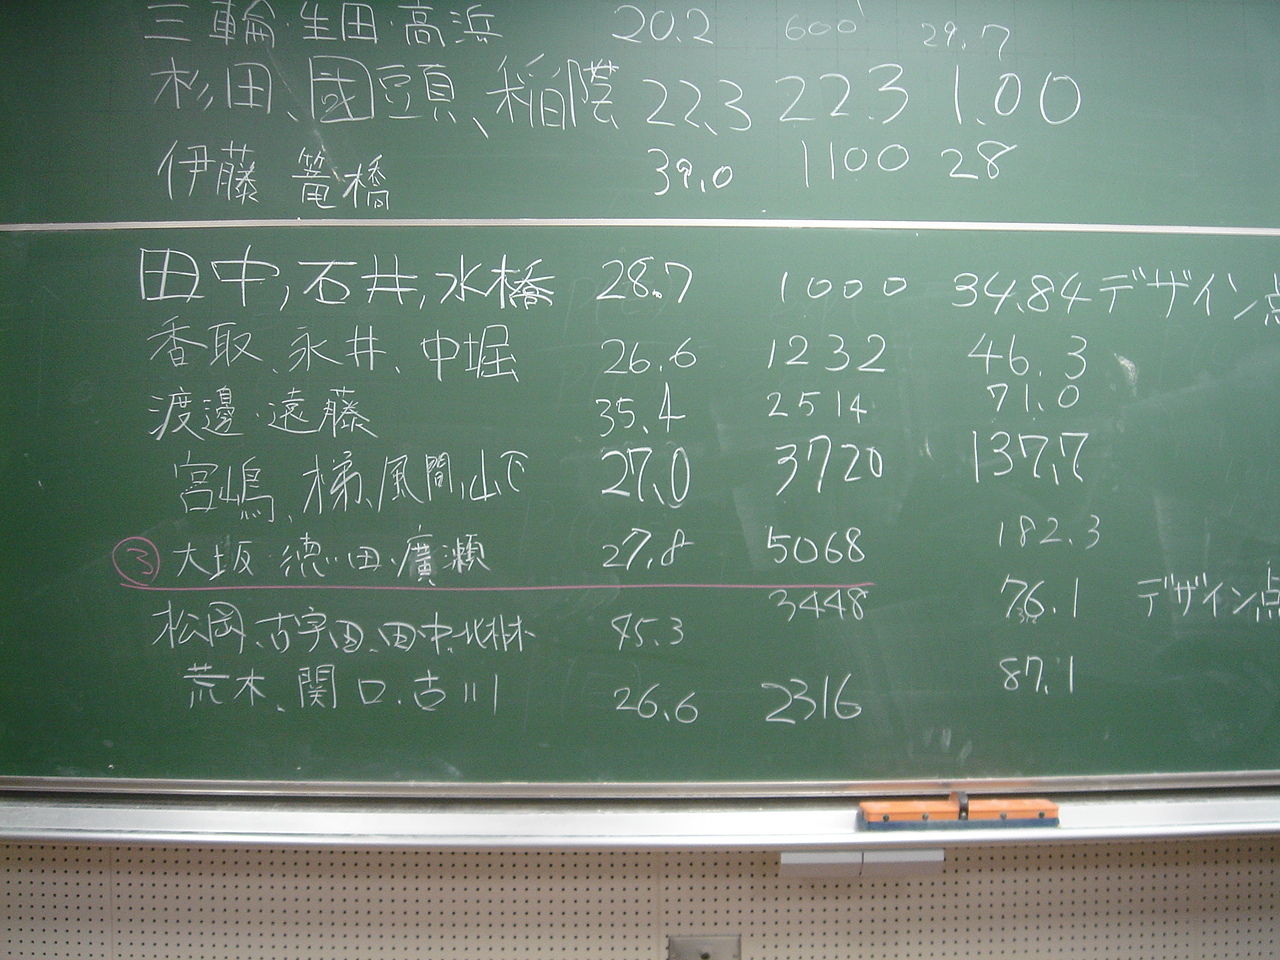 三輪・生田・高浜 20.2 600 29.7
杉田、國頭、稲蔭 22.3 223 1.00
伊藤 篭橋 39.0 1100 28
田中,石井,水橋 28.7 1000 34.84 デザイン点
香取、永井、中堀 26.6 1232 46.3
渡邊・遠藤 35.4 2514 71.0
宮嶋、梯、風間、山下 27.0 3720 137.7
③ 大坂・徳田・廣瀬 27.8 5068 182.3
松岡、古宇田、田中、北林 45.3 3448 76.1 デザイン点
荒木、関口、古川 26.6 2316 87.1